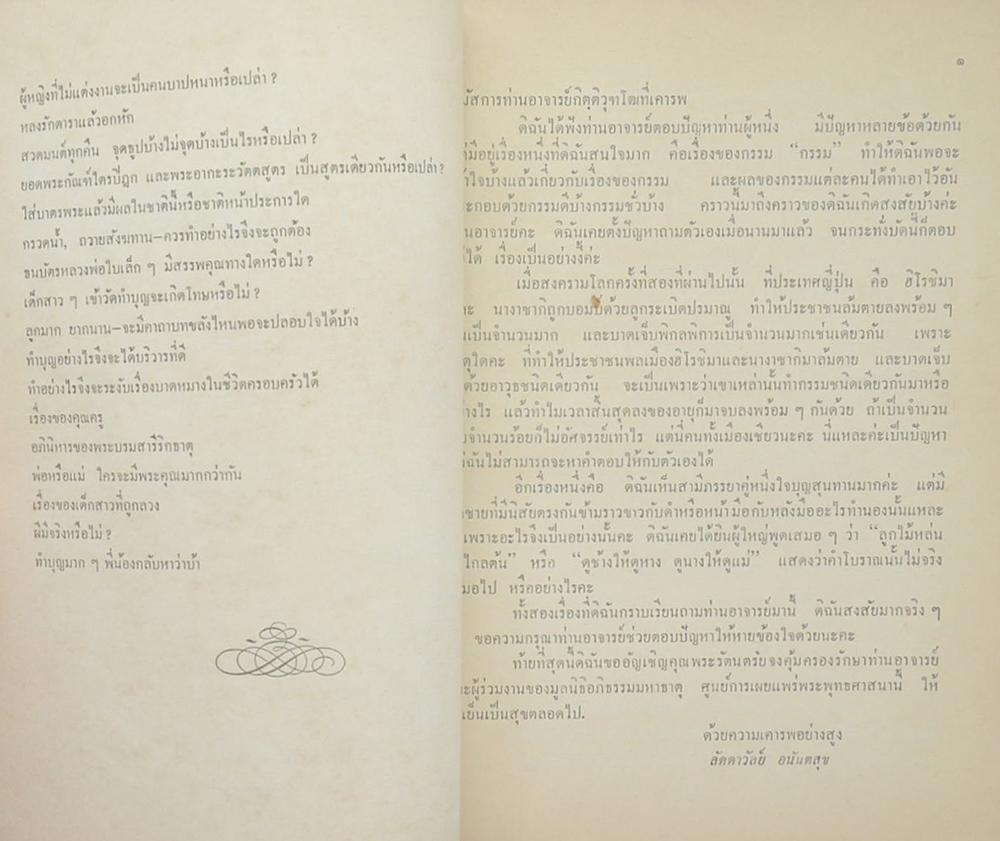 ผู้หญิงที่ไม่แต่งงานจะเป็นคนบาปหนาหรือเปล่า ?
หลงรักดาราแล้วอกหัก
สวดมนต์ทุกคืน จุดธูปบ้างไม่จุดบ้างเป็นไรหรือเปล่า ?
ยอดพระกัณฑ์ไตรปิฎก และพระอาการะวัตตสูตร เป็นสูตรเดียวกันหรือเปล่า?
ใส่บาตรพระแล้วมีผลในชาตินี้หรือชาติหน้าประการใด
กรวดน้ำ, ถวายสังฆทาน–ควรทำอย่างไรจึงจะถูกต้อง
ขนบัตรหลวงพ่อใบเล็ก ๆ มีสรรพคุณทางใดหรือไม่ ?
เด็กสาว ๆ เข้าวัดทำบุญจะเกิดโทษหรือไม่ ?
ลูกมาก ยากนาน–จะมีคาถาบทขลังไหนพอจะปลอบใจได้บ้าง
ทำบุญอย่างไรจึงจะได้บริวารที่ดี
ทำอย่างไรจึงจะระงับเรื่องบาดหมางในชีวิตครอบครัวได้
เรื่องของคุณครู
อภินิหารของพระบรมสารีริกธาตุ
พ่อหรือแม่ ใครจะมีพระคุณมากกว่ากัน
เรื่องของเด็กสาวที่ถูกลวง
ผีมีจริงหรือไม่ ?
ทำบุญมาก ๆ พี่น้องกลับหาว่าบ้า
๑
มัสการท่านอาจารย์กิตฺติวุฑฺโฒที่เคารพ
ดิฉันได้ฟังท่านอาจารย์ตอบปัญหาท่านผู้หนึ่ง มีปัญหาหลายข้อด้วยกัน
มีอยู่เรื่องหนึ่งที่ดิฉันสนใจมาก คือเรื่องของกรรม “กรรม” ทำให้ดิฉันพอจะ
ใจบ้างแล้วเกี่ยวกับเรื่องของกรรม และผลของกรรมแต่ละคนได้ทำเอาไว้อัน
ะกอบด้วยกรรมดีบ้างกรรมชั่วบ้าง คราวนี้มาถึงคราวของดิฉันเกิดสงสัยบ้างค่ะ
นอาจารย์คะ ดิฉันเคยตั้งปัญหาถามตัวเองเมื่อนานมาแล้ว จนกระทั่งบัดนี้ก็ตอบ
ได้ เรื่องเป็นอย่างงี้ค่ะ
เมื่อสงครามโลกครั้งที่สองที่ผ่านไปนั้น ที่ประเทศญี่ปุ่น คือ ฮิโรชิมา
ะ นางาซากิถูกบอมบ์ด้วยลูกระเบิดปรมาณู ทำให้ประชาชนล้มตายลงพร้อม ๆ
เป็นจำนวนมาก และบาดเจ็บพิกลพิการเป็นจำนวนมากเช่นเดียวกัน เพราะ
ตุใดคะ ที่ทำให้ประชาชนพลเมืองฮิโรชิมาและนางาซากิมาล้มตาย และบาดเจ็บ
ด้วยอาวุธชนิดเดียวกัน จะเป็นเพราะว่าเขาเหล่านั้นทำกรรมชนิดเดียวกันมาหรือ
างไร แล้วทำไมเวลาสิ้นสุดลงของอายุก็มาจบลงพร้อม ๆ กันด้วย ถ้าเป็นจำนวน
จำนวนร้อยก็ไม่อัศจรรย์เท่าไร แต่นี่คนทั้งเมืองเชียวนะคะ นี่แหละค่ะเป็นปัญหา
ฉันไม่สามารถจะหาคำตอบให้กับตัวเองได้
อีกเรื่องหนึ่งคือ ดิฉันเห็นสามีภรรยาคู่หนึ่งใจบุญสุนทานมากค่ะ แต่มี
ชายที่มีนิสัยตรงกันข้ามราวขาวกับดำหรือหน้ามือกับหลังมืออะไรทำนองนั้นแหละ
เพราะอะไรจึงเป็นอย่างนั้นคะ ดิฉันเคยได้ยินผู้ใหญ่พูดเสมอ ๆ ว่า “ลูกไม้หล่น
ไกลต้น” หรือ “ดูช้างให้ดูหาง ดูนางให้ดูแม่” แสดงว่าคำโบราณนั้นไม่จริง
มอไป หรืออย่างไรคะ
ทั้งสองเรื่องที่ดิฉันกราบเรียนถามท่านอาจารย์มานี้ ดิฉันสงสัยมากจริง ๆ
ขอความกรุณาท่านอาจารย์ช่วยตอบปัญหาให้หายข้องใจด้วยนะคะ
ท้ายที่สุดนี้ดิฉันขออัญเชิญคุณพระรัตนตรัยจงคุ้มครองรักษาท่านอาจารย์
ะผู้ร่วมงานของมูลนิธิอภิธรรมมหาธาตุ ศูนย์การเผยแพร่พระพุทธศาสนานี้ ให้
เย็นเป็นสุขตลอดไป.
ด้วยความเคารพอย่างสูง
ลัดดาวัลย์ อนันตสุข